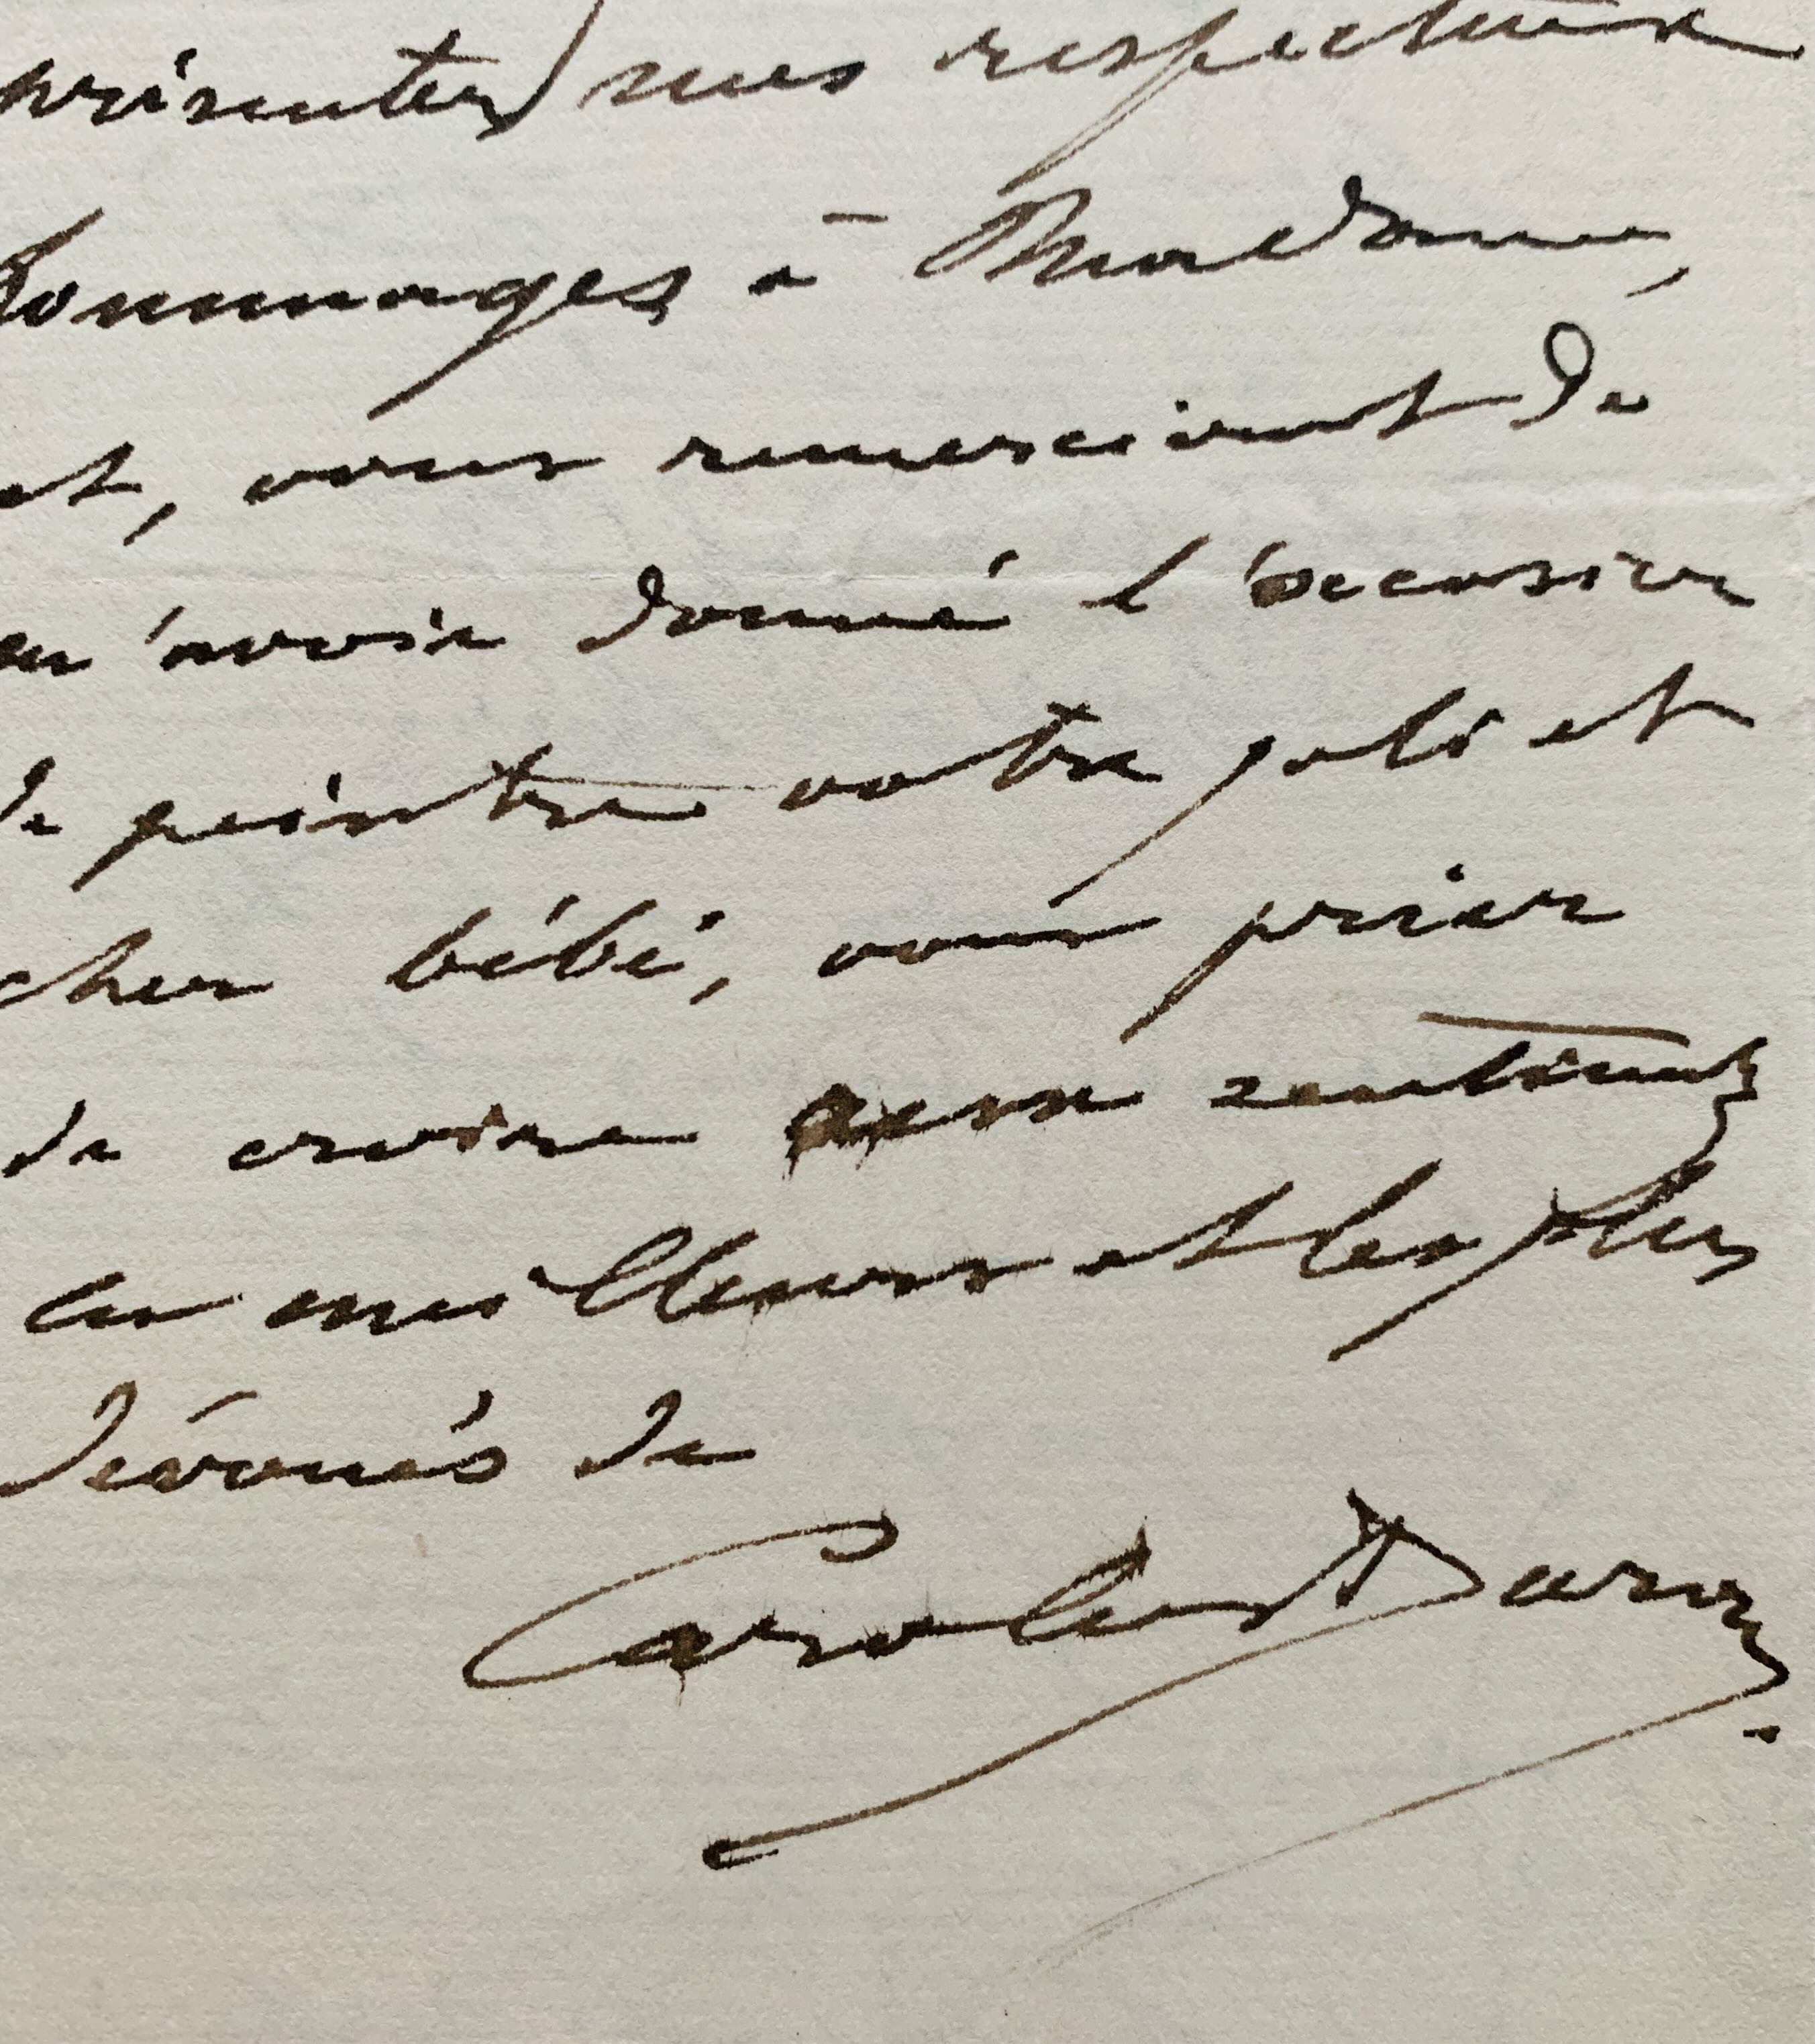 présentez mes respectueux
hommages à Madame,
et, vous remerciant de
m'avoir donné l'occasion
de peintre votre joli et
cher bébé, vous prier
de croire aux sentiments
les meilleurs et les plus
dévoués de
Carolus Duran